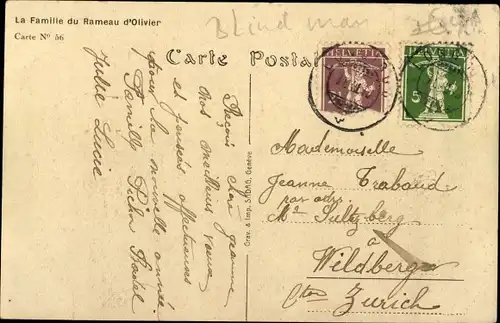 La Famille du Rameau d'Olivier
Carte Nº 56
Blind man
Carte Postale
HELVETIA
HELVETIA
5
Reçois chère Jeanne
nos meilleurs vœux
et pensées affectueuses
pour la nouvelle année
Famille
Julie Lucie
Grav. & Imp. SADAG, Genève
Mademoiselle
Jeanne Trabaud
par adr.
Mr Sultzberg
à
Wildberg
Ctn Zurich